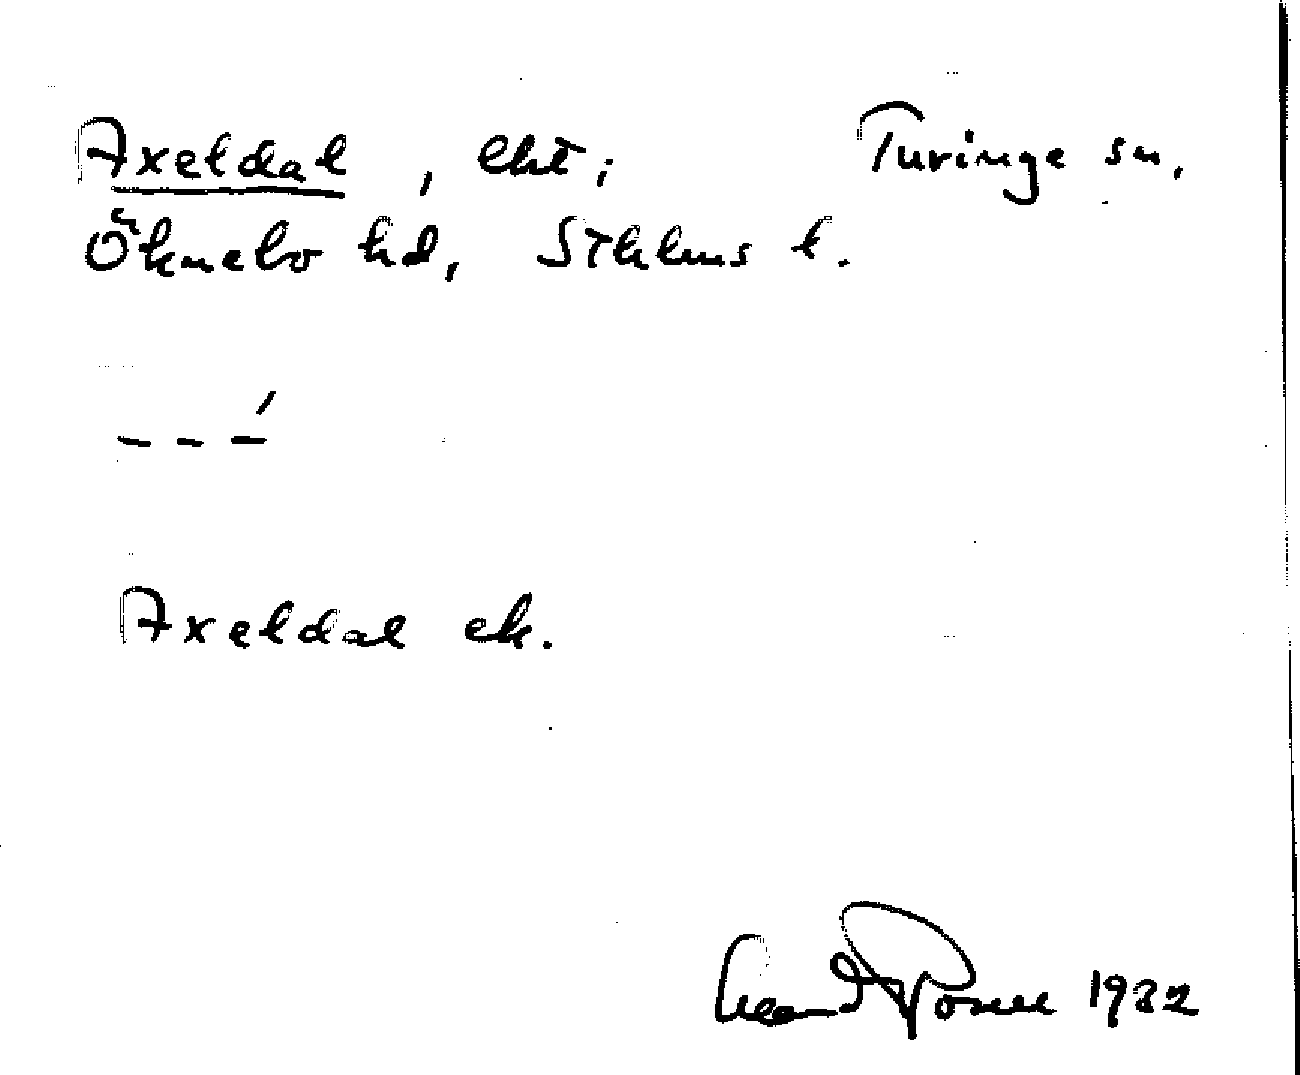 Axeldal, lht; Turinge sn,
Öknebo hd, Sthlms l.
– – –́
Axeldal ek.
1932